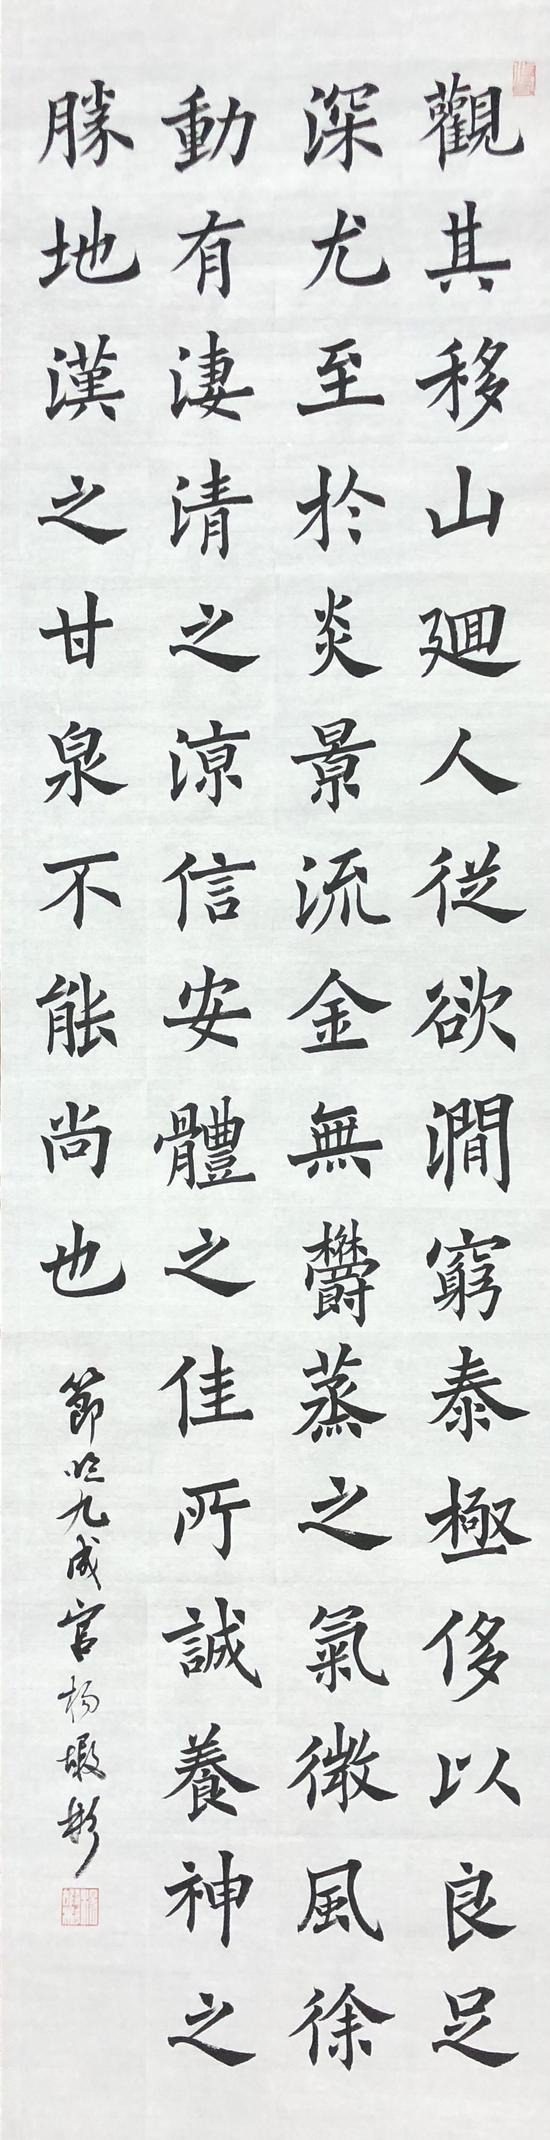 觀其移山廻人從欲澗窮泰極侈以良足
深尤至於炎景流金無欝蒸之氣微風徐
動有淒清之涼信安體之佳所誠養神之
勝地漢之甘泉不能尚也
節臨九成宮楊